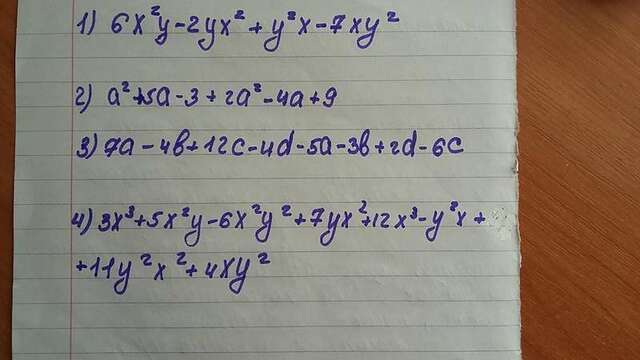 1) 6x²y-2yx²+y²x-7xy²
2) a²+5a-3+2a²-4a+9
3) 7a-4b+12c-4d-5a-3b+2d-6c
4) 3x³+5x²y-6x²y²+7yx²+12x³-y²x+
+11y²x²+4xy²